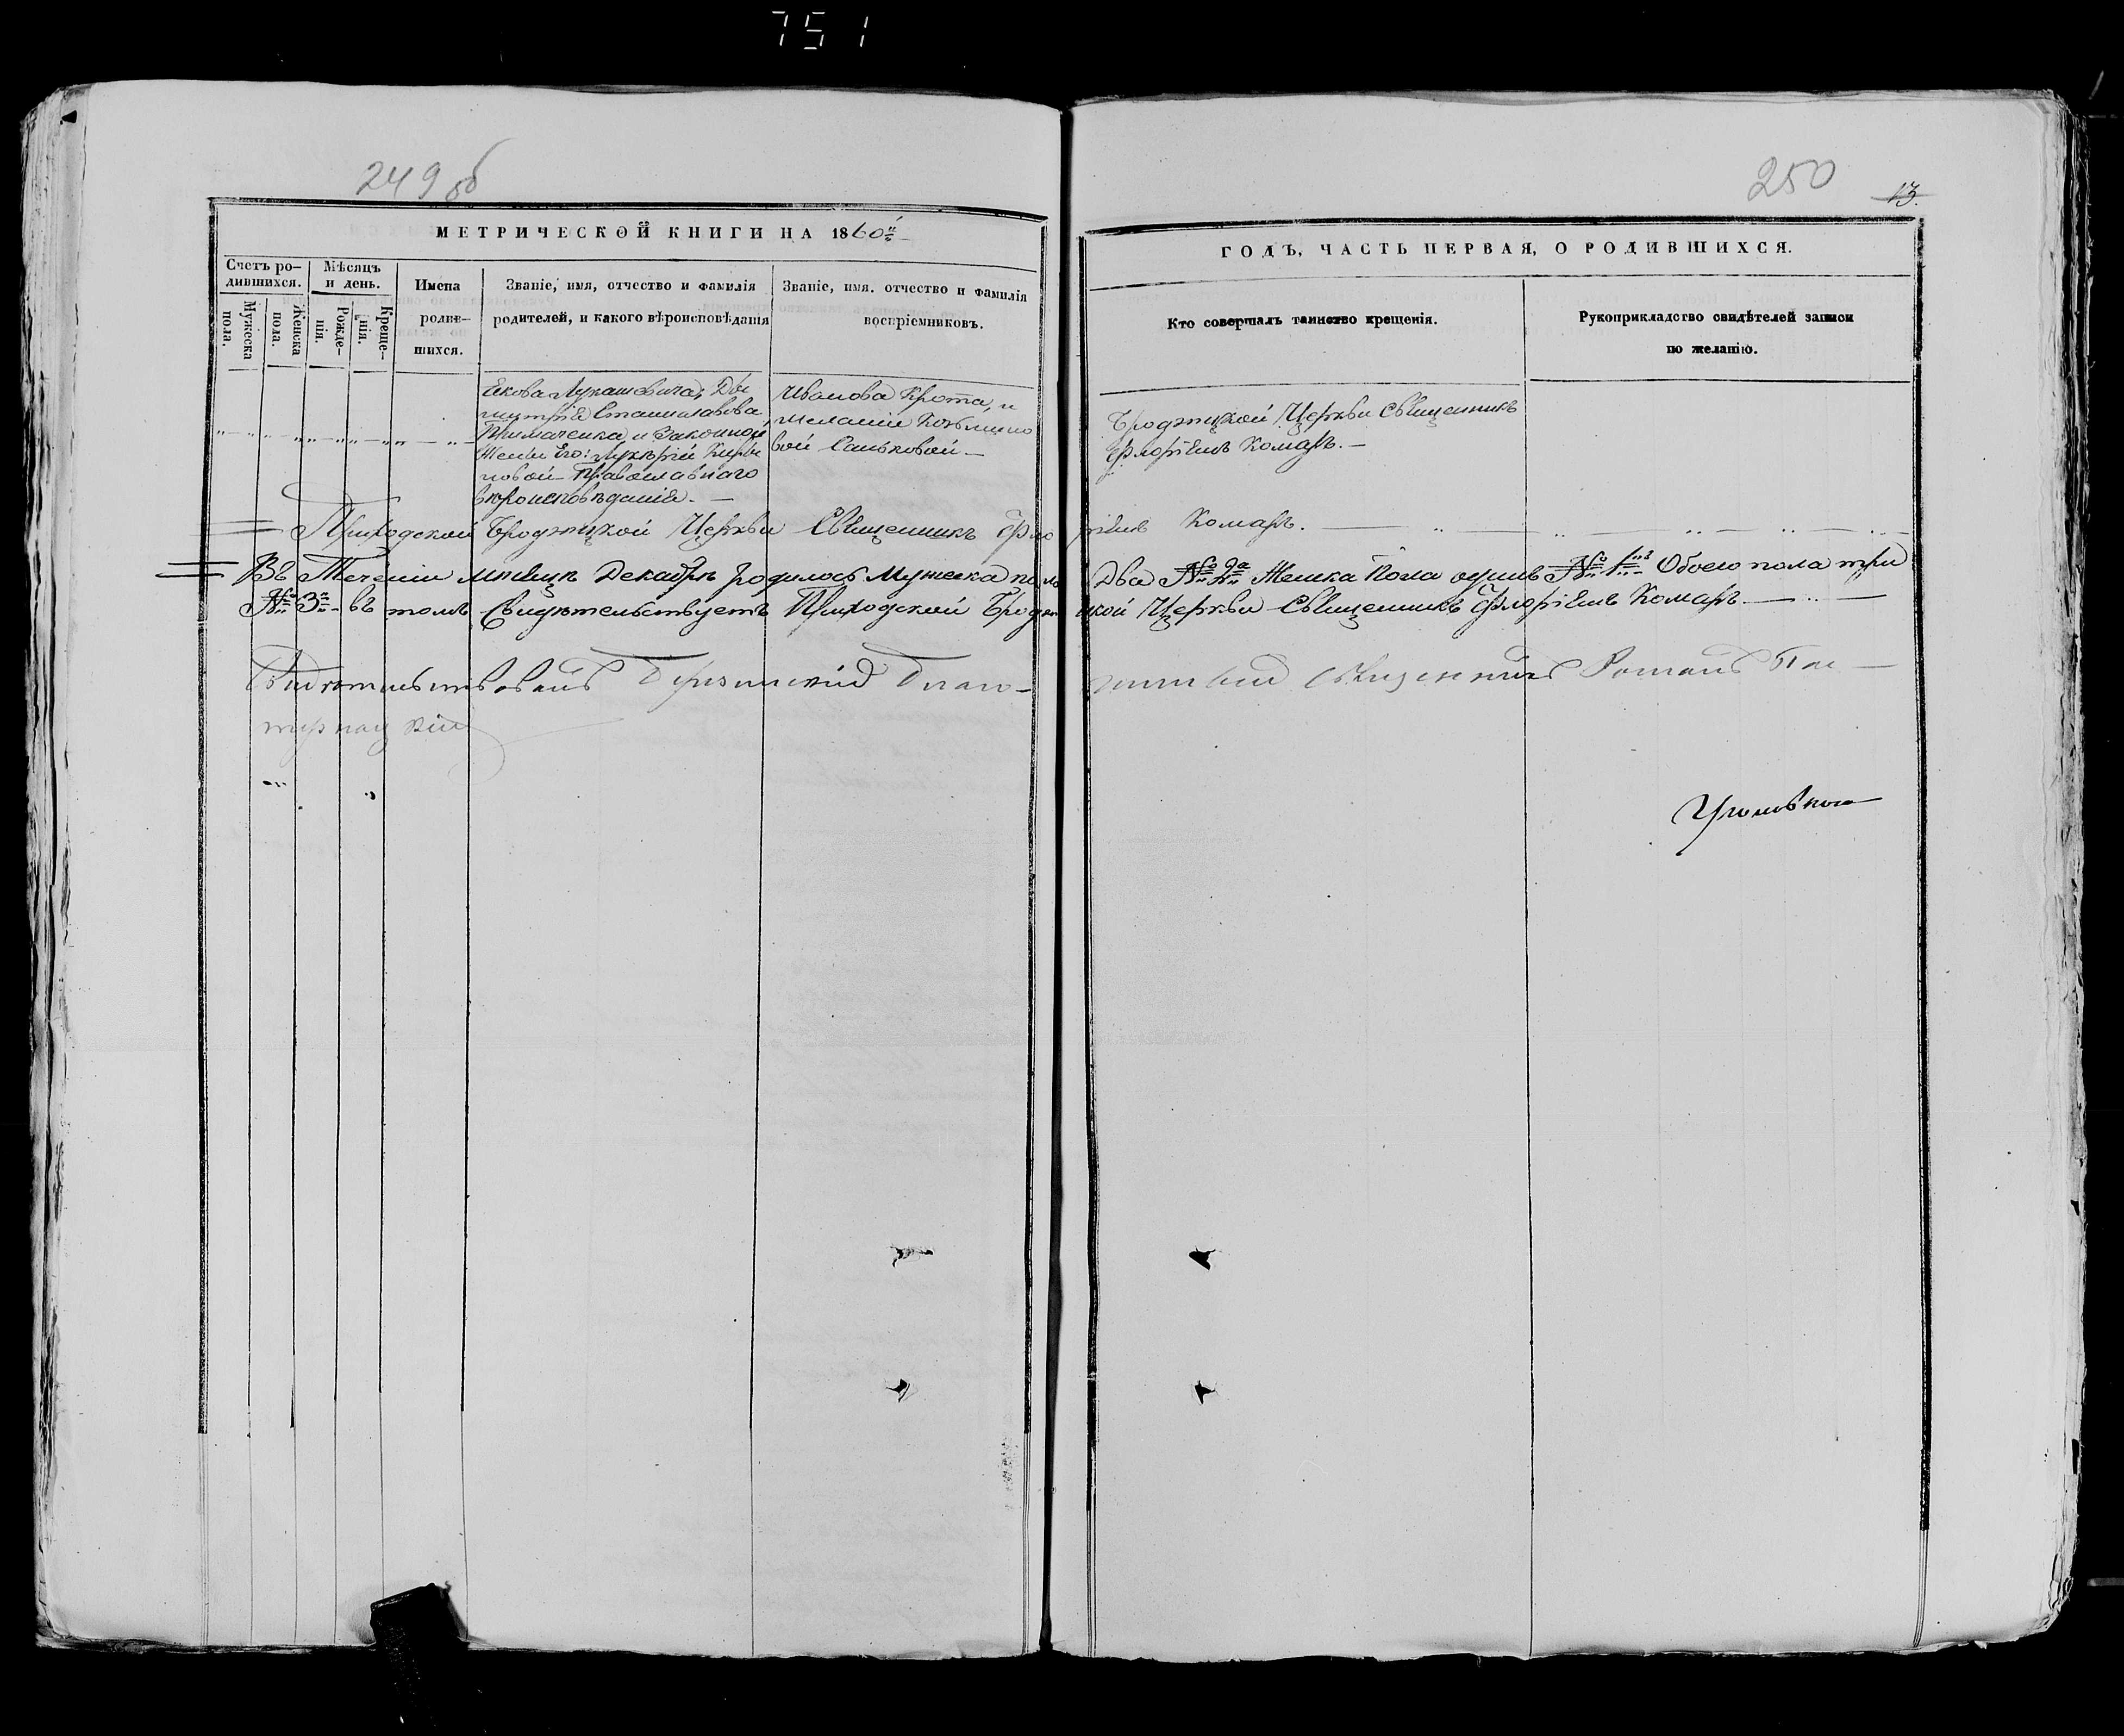 751
249 об
250
13.
МЕТРИЧЕСКОЙ КНИГИ НА 1860й
ГОДЪ, ЧАСТЬ ПЕРВАЯ, О РОДИВШИХСЯ.
Счетъ ро-
дившихся.
Мужеска
пола.
Женска
пола.
Мѣсяцъ
и день.
Рожде-
нія.
Креще-
нія.
Имена
родив-
шихся.
Званіе, имя, отчество и фамилія
родителей, и какого вѣроисповѣданія
Званіе, имя. отчество и фамилія
воспріемниковъ.
Кто совершалъ таинство крещенія.
Рукоприкладство свидѣтелей записи
по желанію.
Екова Лукашевича, Ди
митрія Станиславова
Примаченка и Законной
Жены Его: Лукеріи
новой Православнаго
вѣроисповѣданія. —
Иванова Крота, и
Меланіи Козьмино
вой Саньковой —
Бродзицкой Церкви Священникъ
Флоріянъ Комаръ. —
Приходской Бродзицкой Церкви Священникъ Фло ріянъ Комаръ.
Въ Теченіи мѣсяцѣ Декабрѣ родилось Мужеска пола Два № 2а Женска Пола одинъ № 1й Обоего пола три
№ 3й въ томъ Свидѣтельствуетъ Приходской Бродзи цкой Церкви Священникъ Флоріянъ Комаръ
Свидѣтельствовалъ Благо- чинный Священникъ Романъ Пас —
тернацкій